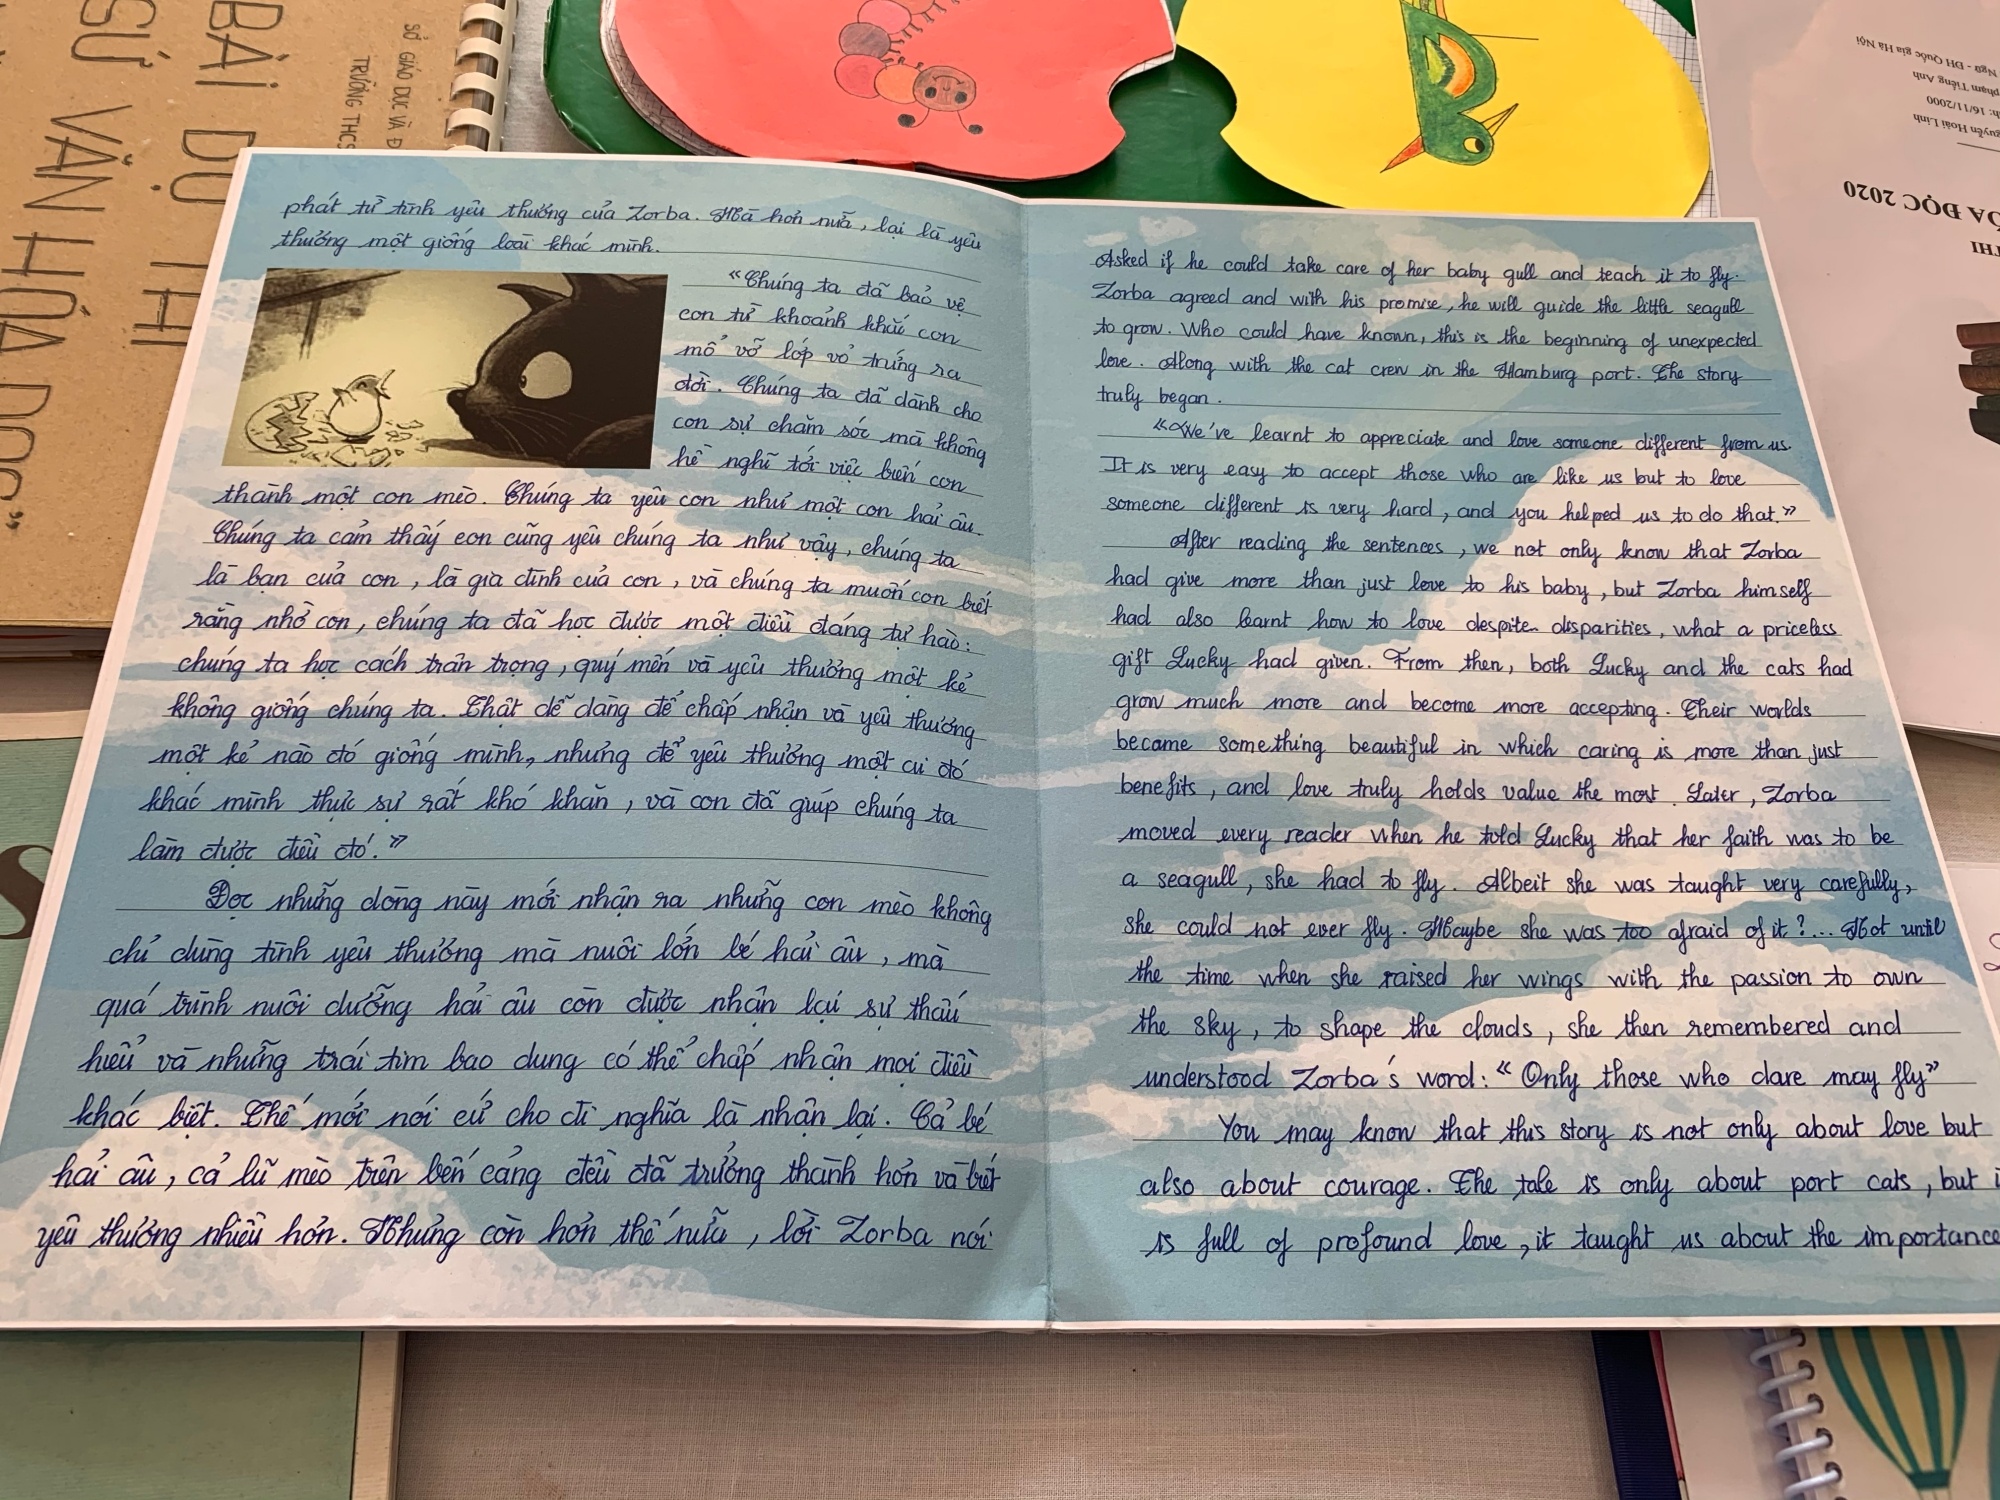 BÀI DỰ THI
SỨ VĂN HÓA ĐỌC"
SỞ GIÁO DỤC VÀ Đ
TRƯỜNG THCS
phát từ tình yêu thương của Zorba. Mà hơn nữa, lại là yêu
thương một giống loài khác mình.
"Chúng ta đã bảo vệ
con từ khoảnh khắc con
mổ vỡ lớp vỏ trứng ra
đời. Chúng ta đã dành cho
con sự chăm sóc mà không
hề nghĩ tới việc biến con
thành một con mèo. Chúng ta yêu con như một con hải âu.
Chúng ta cảm thấy con cũng yêu chúng ta như vậy, chúng ta
là bạn của con, là gia đình của con, và chúng ta muốn con biết
rằng nhờ con, chúng ta đã học được một điều đáng tự hào:
chúng ta học cách trân trọng, quý mến và yêu thương một kẻ
không giống chúng ta. Thật dễ dàng để chấp nhận và yêu thương
một kẻ nào đó giống mình, nhưng để yêu thương một ai đó
khác mình thực sự rất khó khăn, và con đã giúp chúng ta
làm được điều đó."
Đọc những dòng này mới nhận ra những con mèo không
chỉ dùng tình yêu thương mà nuôi lớn bé hải âu, mà
quá trình nuôi dưỡng hải âu còn được nhận lại sự thấu
hiểu và những trái tim bao dung có thể chấp nhận mọi điều
khác biệt. Thế mới nói cứ cho đi nghĩa là nhận lại. Cả bé
hải âu, cả lũ mèo trên bến cảng đều đã trưởng thành hơn và biết
yêu thương nhiều hơn. Nhưng còn hơn thế nữa, lời Zorba nói
Asked if he could take care of her baby gull and teach it to fly.
Zorba agreed and with his promise, he will guide the little seagull
to grow. Who could have known, this is the beginning of unexpected
love. Along with the cat crew in the Hamburg port. The story
truly began.
"We've learnt to appreciate and love someone different from us.
It is very easy to accept those who are like us but to love
someone different is very hard, and you helped us to do that."
After reading the sentences, we not only know that Zorba
had give more than just love to his baby, but Zorba himself
had also learnt how to love despite disparities, what a priceless
gift Lucky had given. From then, both Lucky and the cats had
grow much more and become more accepting. Their worlds
became something beautiful in which caring is more than just
benefits, and love truly holds value the most. Later, Zorba
moved every reader when he told Lucky that her faith was to be
a seagull, she had to fly. Albeit she was taught very carefully,
she could not ever fly. Maybe she was too afraid of it?... Not until
the time when she raised her wings with the passion to own
the sky, to shape the clouds, she then remembered and
understood Zorba's word: "Only those who dare may fly"
You may know that this story is not only about love but
also about courage. The tale is only about port cats, but i
is full of profound love, it taught us about the importance
THI
ÓA ĐỌC 2020
guyễn Hoài Linh
h: 16/11/2000
phạm Tiếng Anh
Ngữ - ĐH Quốc gia Hà Nội